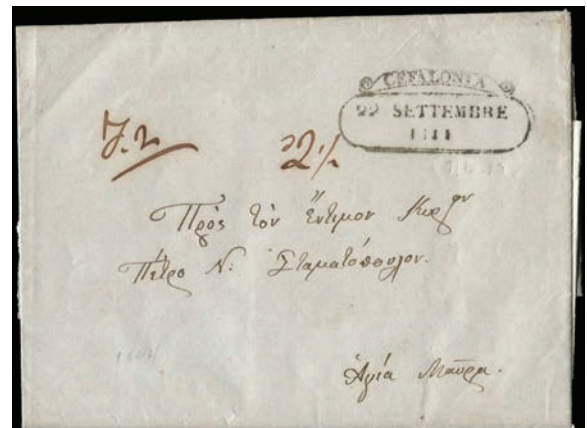 CEFALONIA
22 SETTEMBRE
2½
Πρὸς τὸν ἔντιμον Κύρ^{ον}
Πέτρο Ν: Σταματόπουλον.
1844
Ἁγία Μαῦρα.